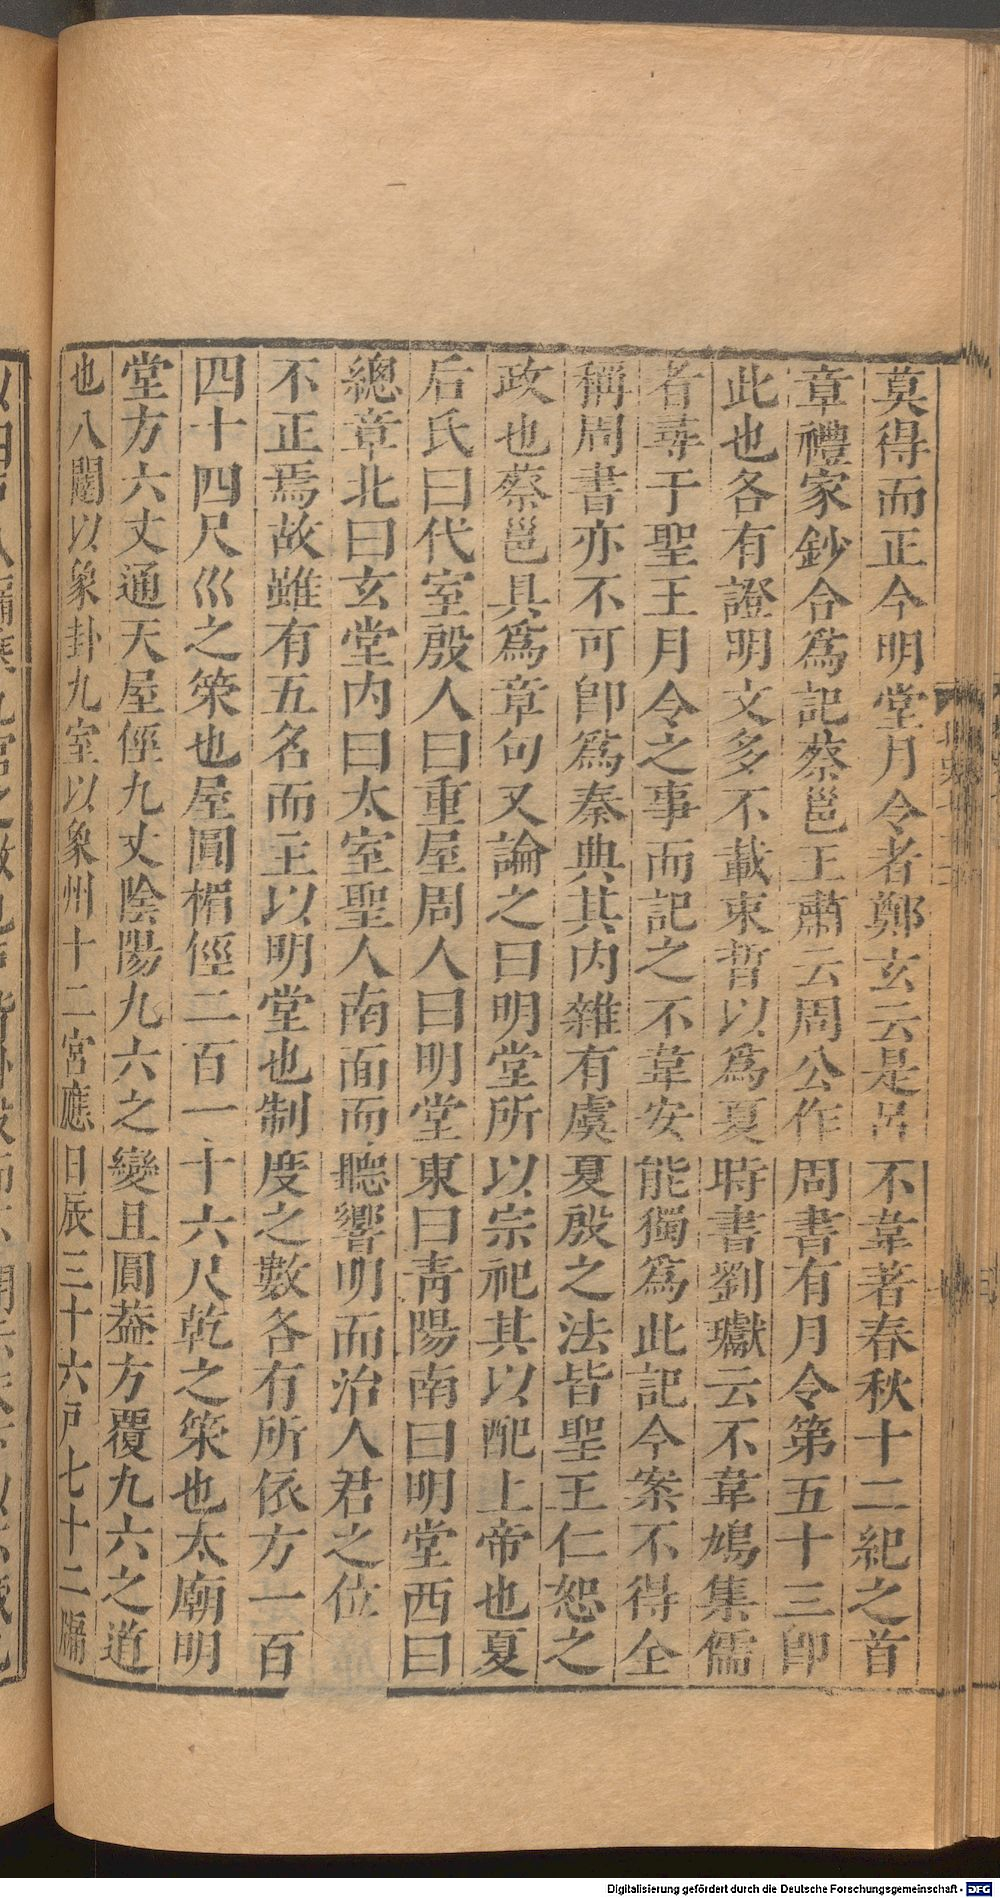 莫得而正今明堂月令者鄭玄云是呂不韋著春秋十二紀之首
章禮家鈔合爲記蔡邕王肅云周公作周書有月令第五十三卽
此也各有證明文多不載束晳以爲夏時書劉瓛云不韋鳩集儒
者尋于聖王月令之事而記之不韋安能獨爲此記今案不得全
稱周書亦不可卽爲秦典其內雜有虞夏殷之法皆聖王仁恕之
政也蔡邕具爲章句又論之曰明堂所以宗祀其以配上帝也夏
后氏曰代室殷人曰重屋周人曰明堂東曰靑陽南曰明堂西曰
總章北曰玄堂內曰太室聖人南面而聽響明而治人君之位
不正焉故雖有五名而主以明堂也制度之數各有所依方一百
四十四尺巛之筞也屋圓楣徑二百一十六尺乾之筞也太廟明
堂方六丈通天屋徑九丈陰陽九六之變且圓蓋方覆九六之道
也八闥以象卦九室以象州十二宮應日辰三十六戶七十二牖
Digitalisierung gefördert durch die Deutsche Forschungsgemeinschaft - DFG